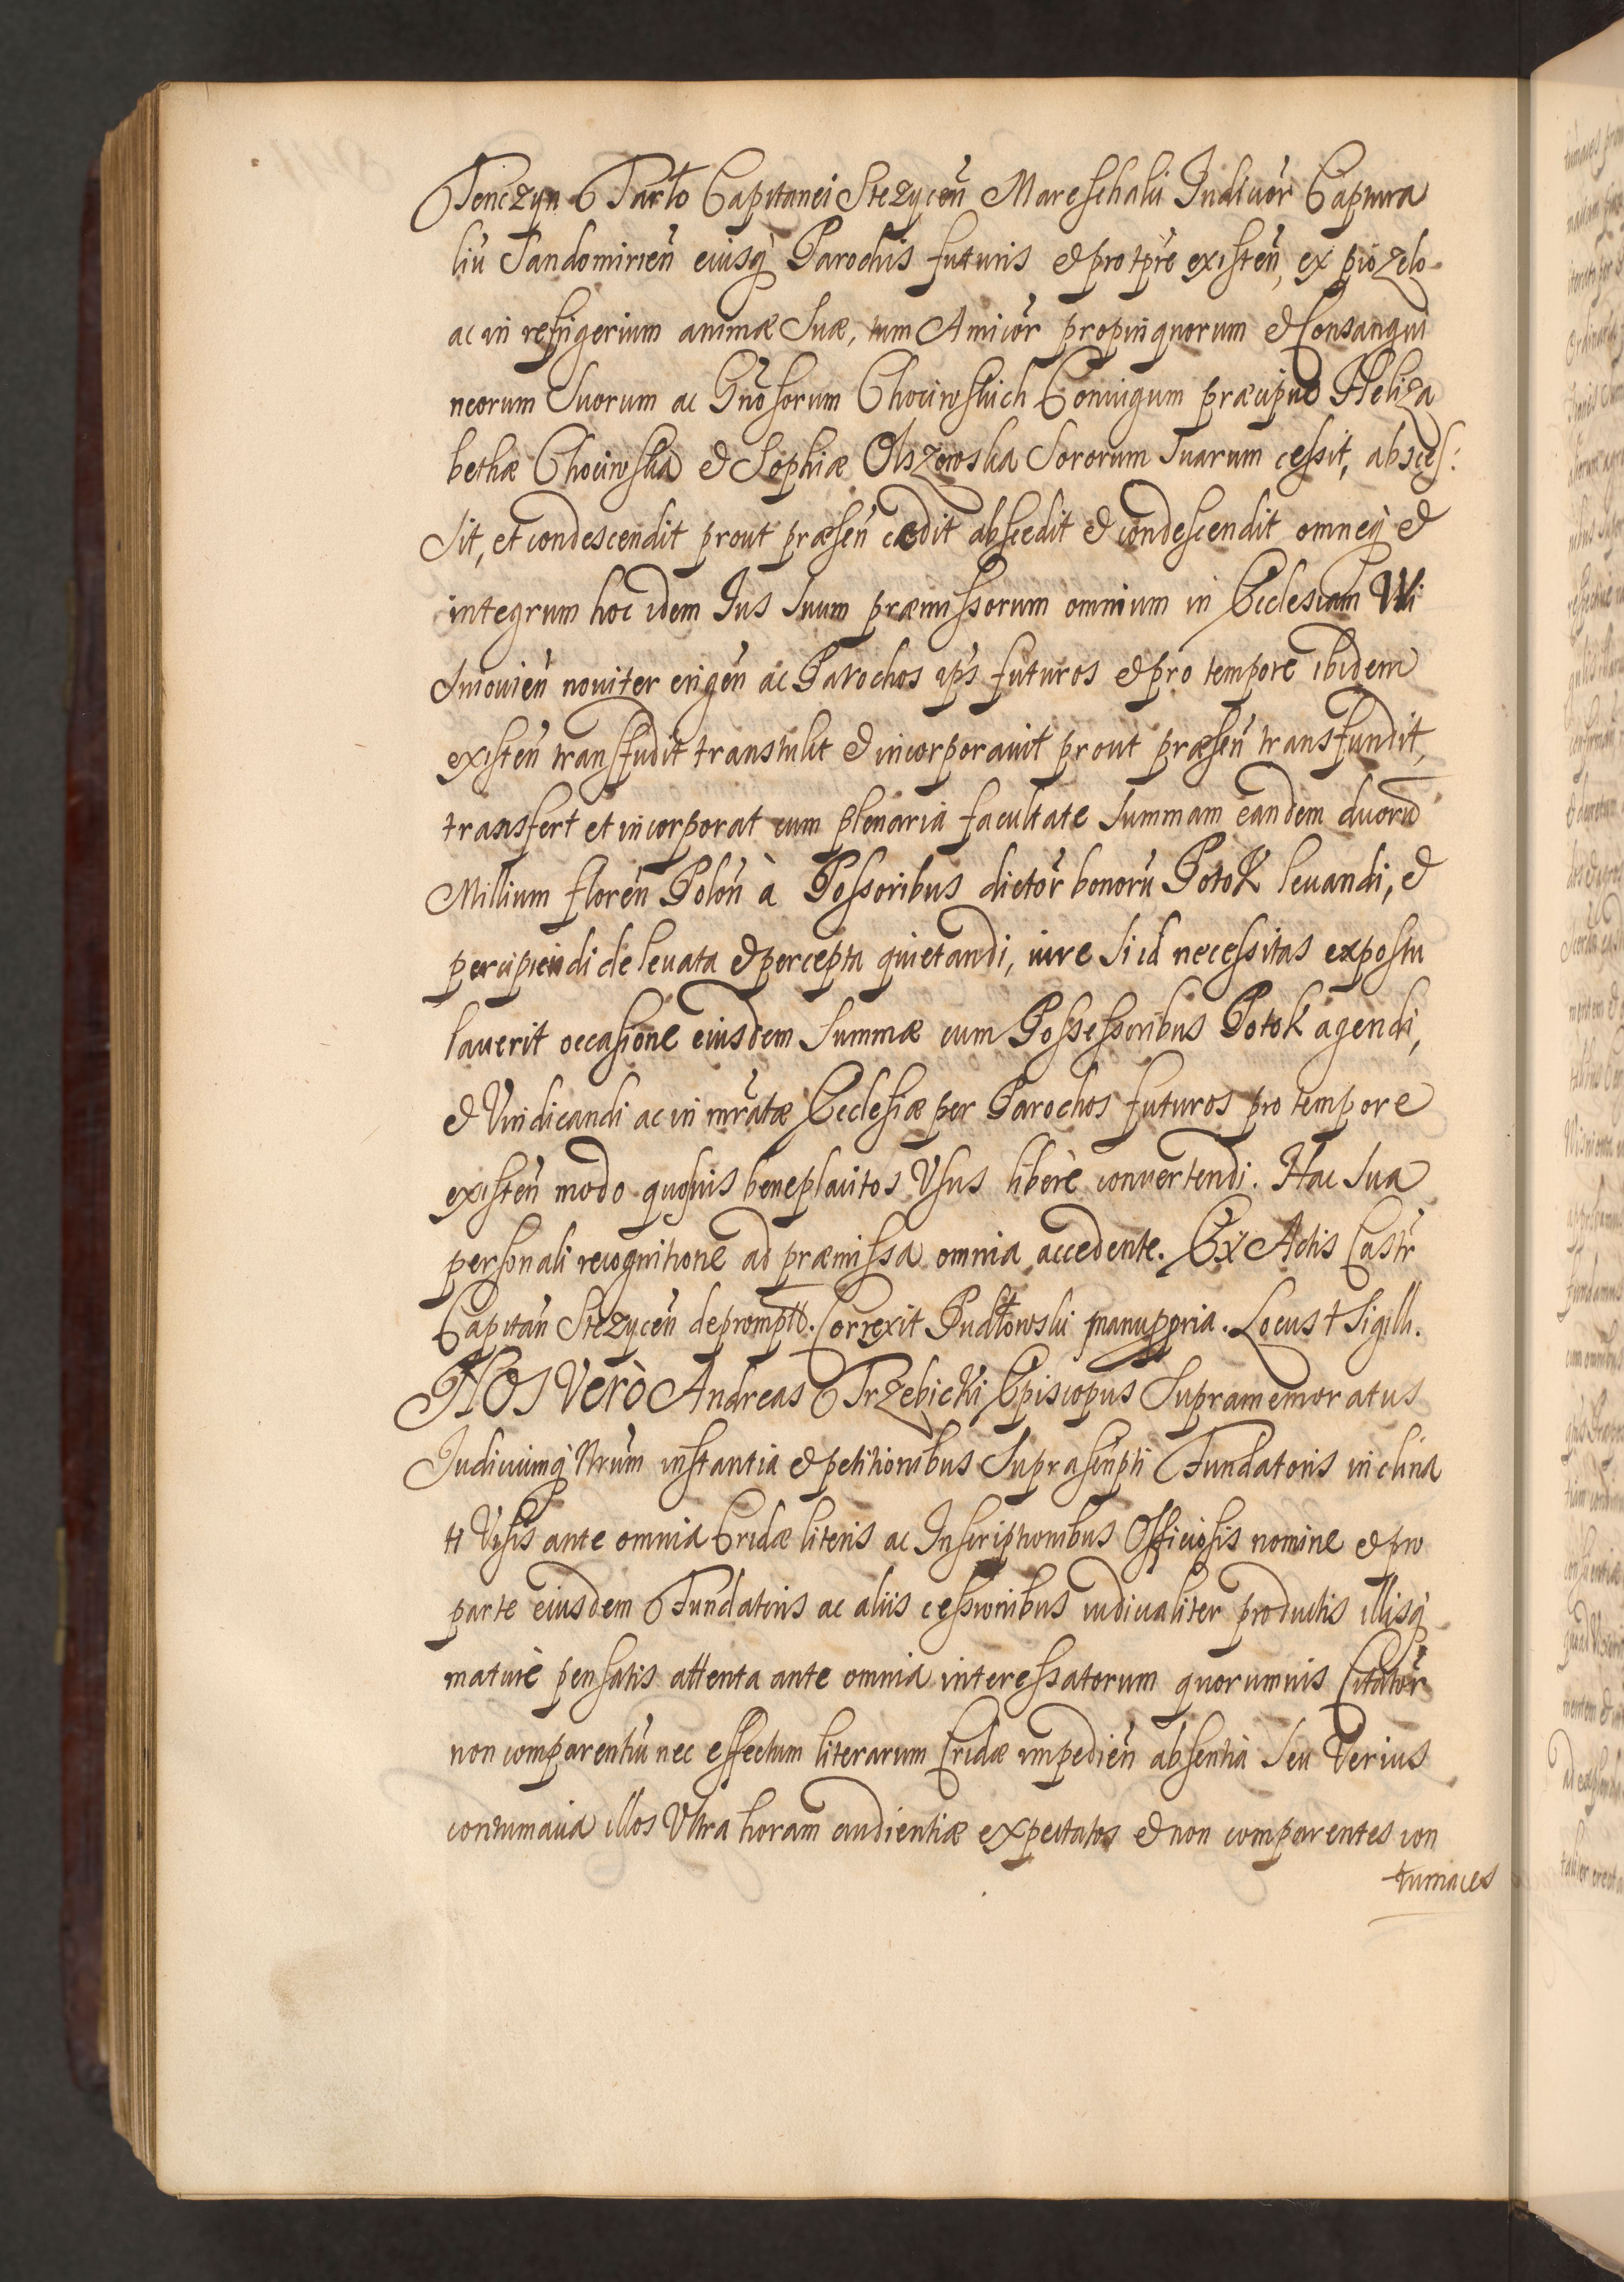 Tenczyn Tarło Capitanei Stezyceñ Mareschalci Iudicior̃ Captura
liũ Sandomirieñ eiusq̃ Parochis futuris & pro tp̃re existeñ, ex pio zelo
ac in refrigerium animæ Suæ, tum Amicor̃ propinquorum & Consangui
neorum Suorum ac Gñosorum Chociwskich Coniugum præcipuè Heliza
bethæ Chociwska & Sophiæ Olszowska Sororum Suarum cessit, absces:
sit, et condescendit prout præseñ cædit abscedit & condescendit omneq̃ &
integrum hoc idem Ius Suum præmissorum omnium in Ecclesiam Wi
Sniovieñ noviter erigeñ ac Parochos ip̃s futuros & pro tempore ibidem
existeñ transfudit transtulit & incorporavit prout præseñ transfundit,
transfert et incorporat cum plenaria facultate Summam eandem duorũ
Millium floreñ Poloñ à Possoribus dictor̃ bonorũ Potok levandi, &
percipiendi de levata & percepta quietandi, iure Si id necessitas expostu
laverit occasione eiusdem Summæ cum Possessoribus Potok agendi,
& Vindicandi ac in mr̃atæ Ecclesiæ per Parochos futuros pro tempore
existeñ modo quovis beneplacitos Vsus liberè convertendi. Hac Sua
personali recognitione ad præmissa omnia accedente. Ex Actis Castr̃
Capitañ Stezyceñ depromptt. Correxit Pudłowski manuppria. Locus † Sigilli.
NOS Verò Andreas Trzebicki Episcopus Supramemoratus
Iudiciumq̃ Nr̃um instantia & petitionibus Suprascripti Fundatoris inclina
ti Visis ante omnia Cridæ literis ac Inscriptionibus Officiosis nomine & pro
parte eiusdem Fundatoris ac aliis cessionibus iudicialiter productis illisq̃
maturè pensatis attenta ante omnia interessatorum quorumvis Citator̃
non comparentiũ nec effectum literarum Cridæ impedieñ absentiâ Seu Verius
contumacia illos Vltra horam audientiæ expectatos & non comparentes con
tumaces